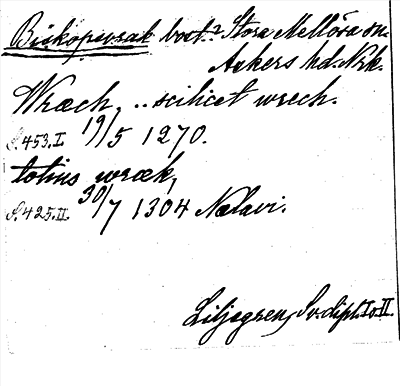 Biskopsvrak bort? Stora Mellösa sn.
Askers hd. Nrk.
Wræch, .. scilicet wrech.
S. 453. I. 19/5 1270.
totius wræk,
S. 425. II. 30/7 1304 Nælavi.
Liljegren, Sv. dipl. I o. II.